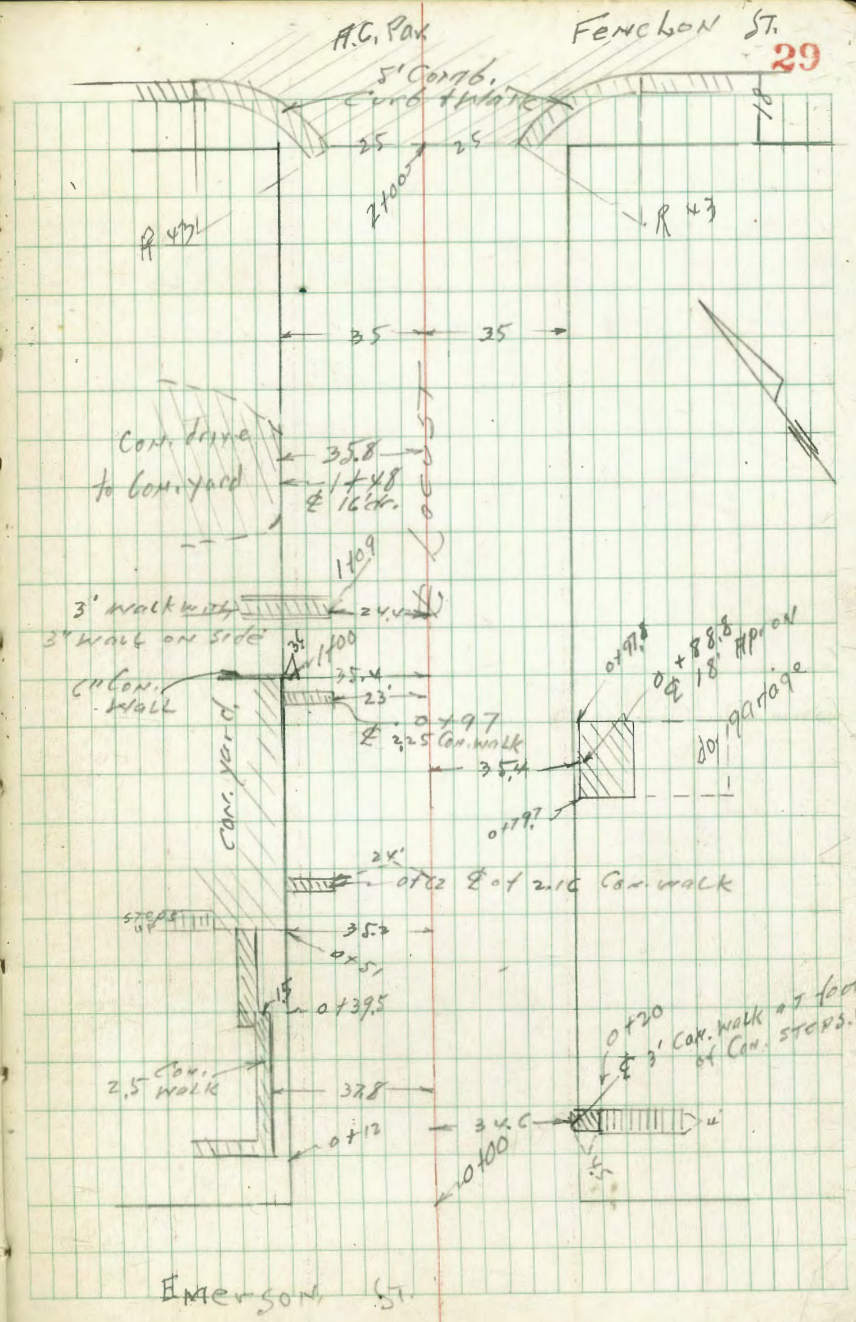 A.C. Pav.
Fenelon St.
29
5' Comb.
Curb + Walk
18
25
25
2+00
R 43'
R 43
35
35
Con. drive
to Con. yard
35.8
1+48
℄ 16' dr.
℄ Locust
1+09
3' walk with
3" wall on side
24.4
3½
1+00
6" Con.
Wall
35.4
23'
0+97
℄ 2.25 Con. walk
Con. yard
0+97.8
0+88.8
℄ 18' Ap. on
do garage
35.4
0+79.7
24'
0+62 ℄ of 2.16 Con. walk
steps
up
35.2
0+51
1.5
0+39.5
2.5 Con.
walk
37.8
0+12
0+20
℄ 3' Con. walk at foot
of Con. steps.
34.6
4'
4.5
0+00
Emerson St.